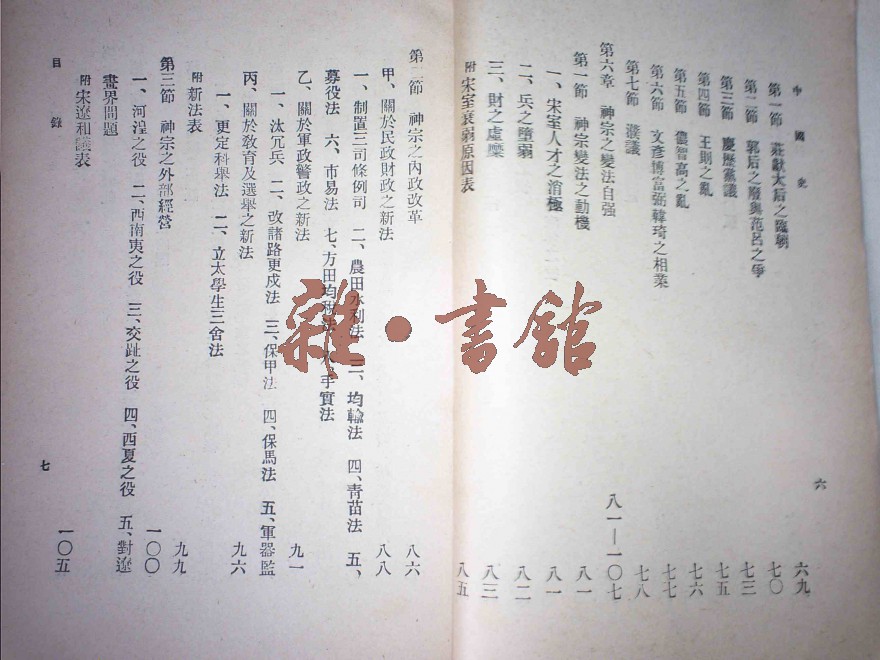 中國史
第一節 莊獻太后之臨朝 六九
第二節 郭后之廢與范呂之爭 七〇
第三節 慶歷黨議 七三
第四節 王則之亂 七五
第五節 儂智高之亂 七六
第六節 文彥博富弼韓琦之相業 七七
第七節 濮議 七八
第六章 神宗之變法自强 八一—一〇七
第一節 神宗變法之動機 八一
一、宋室人才之消極 八一
二、兵之墮弱 八二
三、財之虛糜 八三
附 宋室衰弱原因表 八五
六
第二節 神宗之內政改革 八六
甲、關於民政財政之新法 八八
一、制置三司條例司 二、農田水利法 三、均輸法 四、青苗法 五、
募役法 六、市易法 七、方田均稅法 八、手實法
乙、關於軍政警政之新法 九一
一、汰冗兵 二、改諸路更戍法 三、保甲法 四、保馬法 五、軍器監
丙、關於教育及選舉之新法 九六
一、更定科舉法 二、立太學生三舍法
附 新法表 九九
第三節 神宗之外部經營 一〇〇
一、河湟之役 二、西南夷之役 三、交趾之役 四、西夏之役 五、對遼
畫界問題
附 宋遼和議表 一〇五
目錄
七
雜·書館